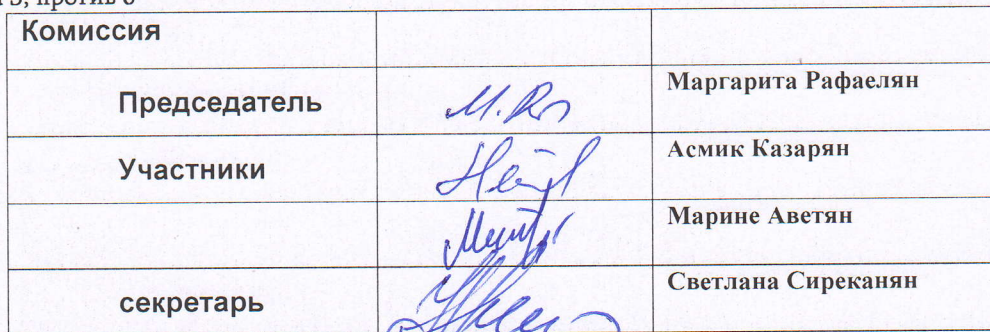 против
Комиссия
Председатель М. Маргарита Рафаелян
Участники Асмик Казарян
Марине Аветян
секретарь Светлана Сиреканян